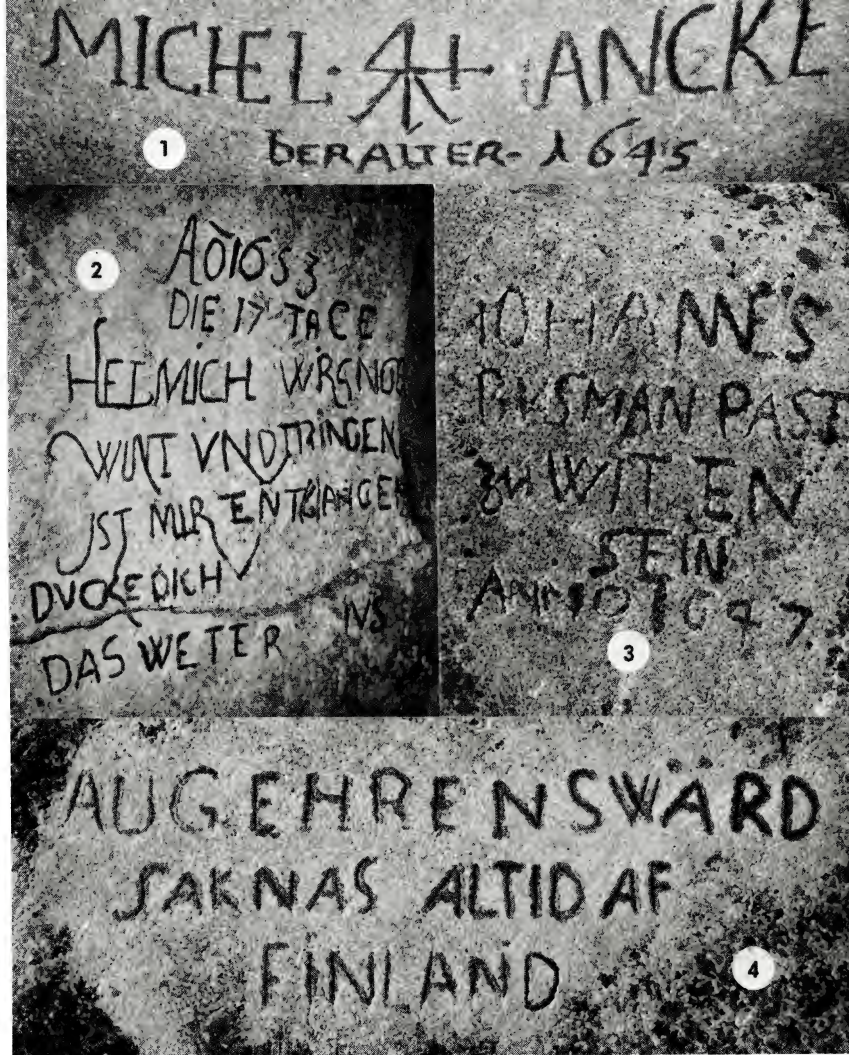 MICHEL ANCKE
1
DERALTER- 1645
2
AÕ1653
DIE 17 TACE
HELMICH
WINT VND
IST MIR ENTGANGEN
DVCKE DICH
NS
DAS WETER
IOHANNES
PAST
zu WITTEN
SEIN
ANNO 1647
3
AUG EHRENSWÄRD
SAKNAS ALTID AF
FINLAND
4